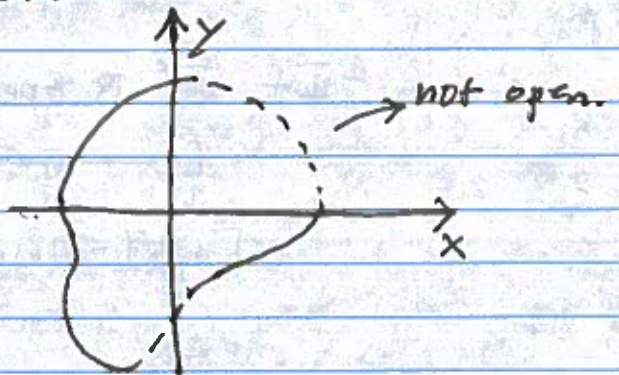 y
not open.
x